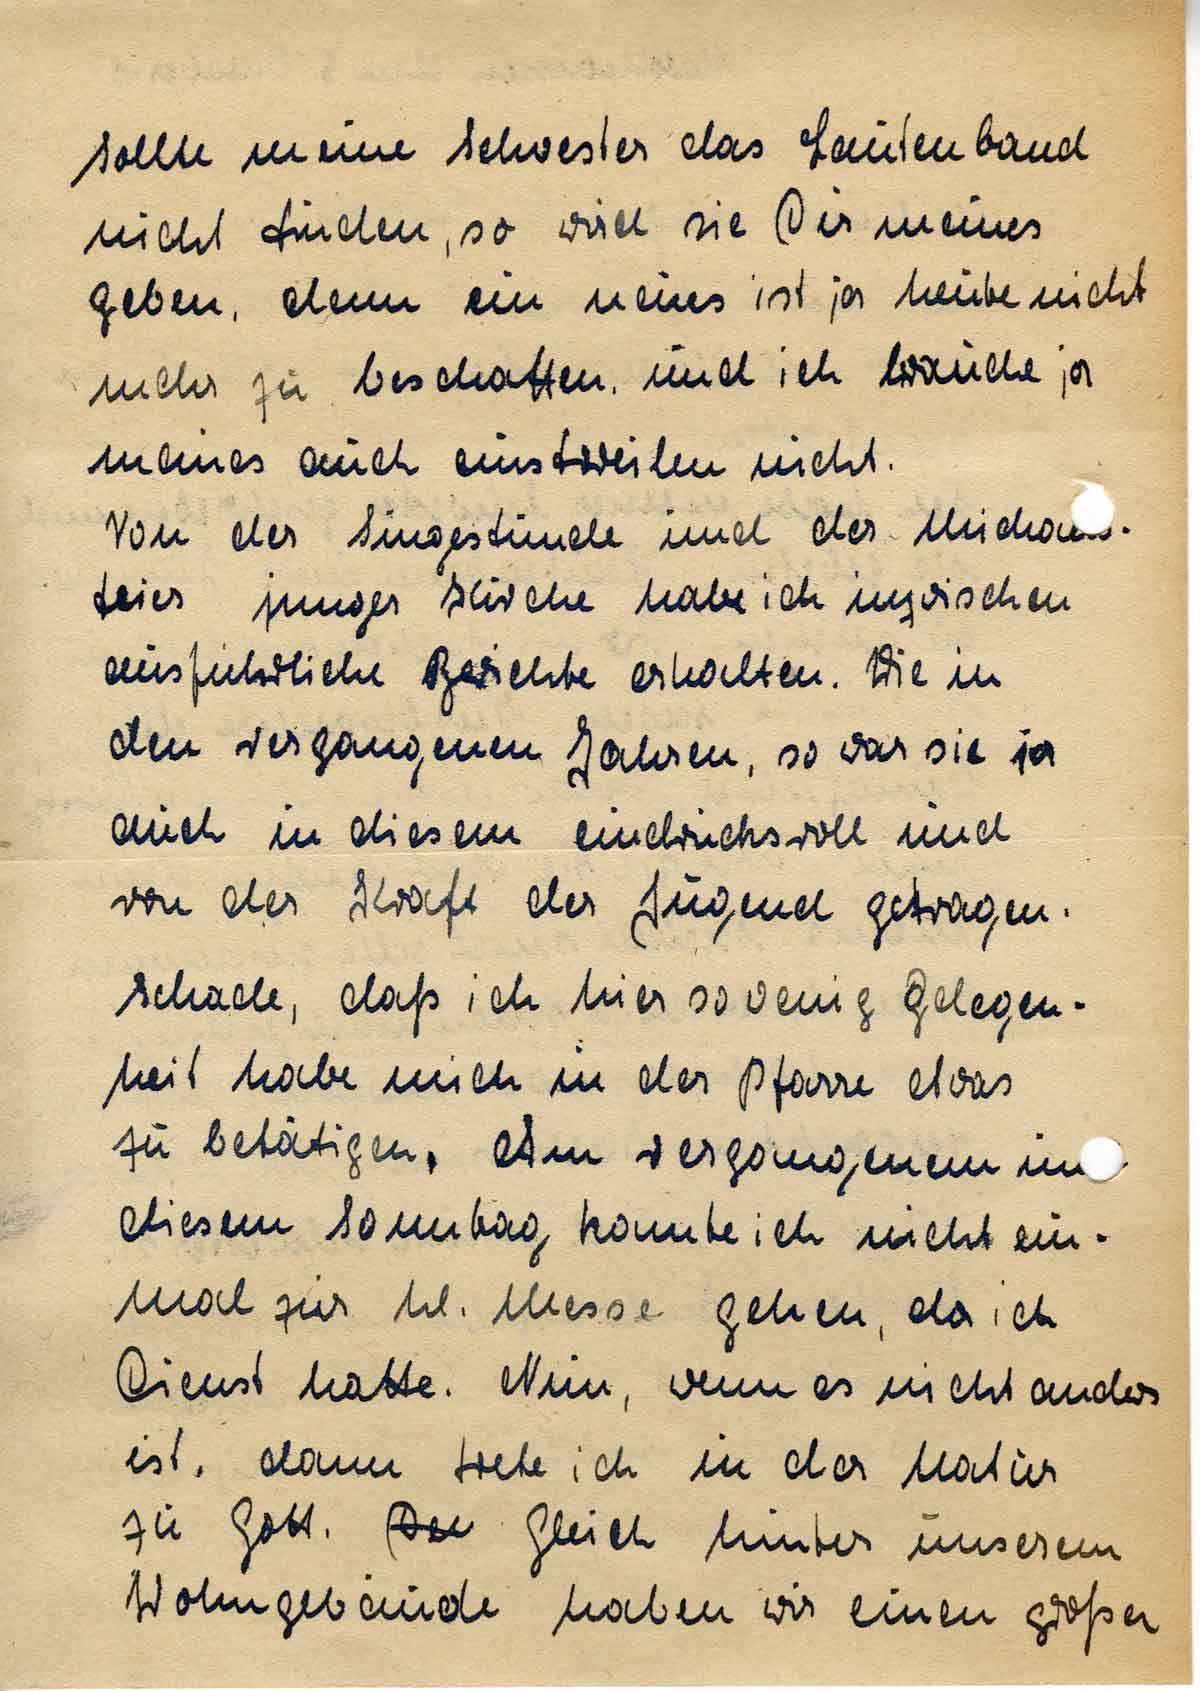 Sollte meine Schwester das Lautenband
nicht finden, so wird sie Dir meines
geben, denn ein neues ist ja heute nicht
mehr zu beschaffen. und ich brauche ja
meines auch einstweilen nicht.
Von der Singestunde und der Michaels-
feier junger Kirche habe ich inzwischen
ausführliche Berichte erhalten. Wie in
den vergangenen Jahren, so war sie ja
auch in diesem eindrucksvoll und
von der Kraft der Jugend getragen.
Schade, daß ich hier so wenig Gelegen-
heit habe mich in der Pfarre etwas
zu betätigen. Am vergangenem und
diesem Sonntag konnte ich nicht ein-
mal zur hl. Messe gehen, da ich
Dienst hatte. Nun, wenn es nicht anders
ist, dann trete ich in der Natur
zu Gott. Gleich hinter unserem
Wohngebäude haben wir einen großen